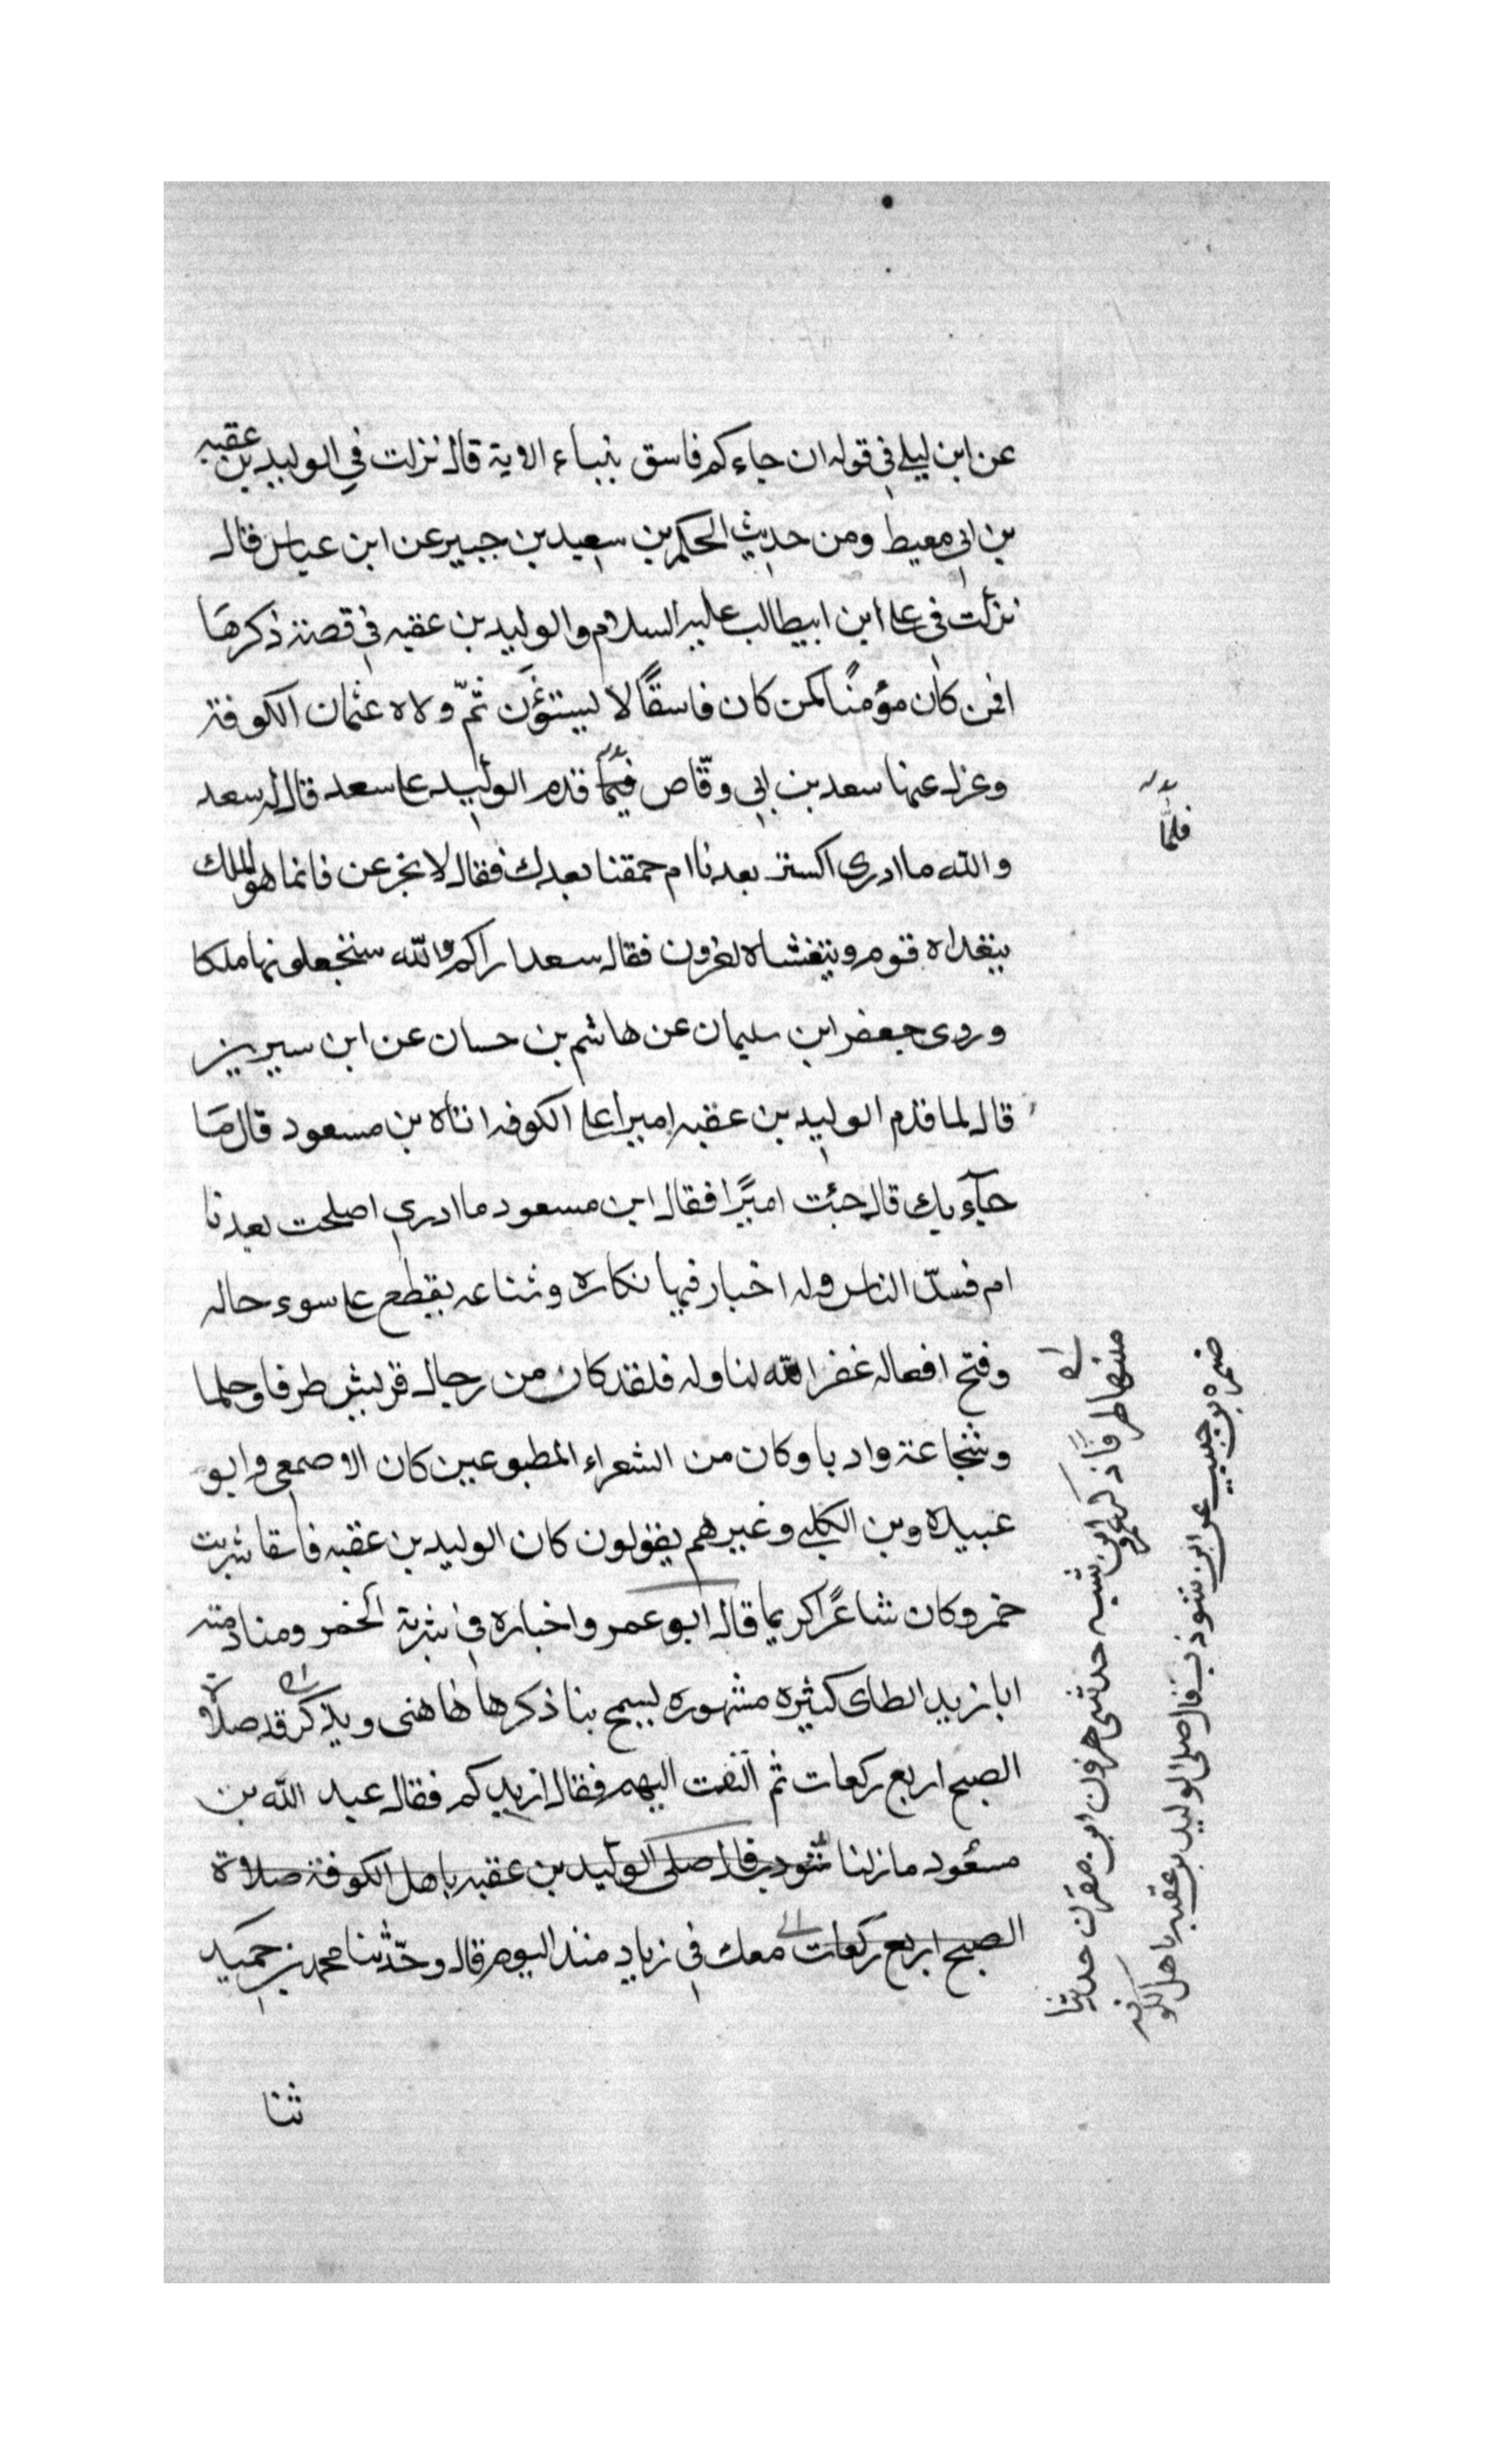 عن ابن ليلى في قوله ان جاءكم فاسق بنباء الاية قال نزلت في الوليد بن عقبه
بن ابي معيط ومن حديث الحكم بن سعيد بن جبير عن ابن عباس قال
نزلت في علي ابن ابيطالب عليه السلام والوليد بن عقبه في قصة ذكرها
افمن كان مؤمنًا كمن كان فاسقًا لا يستؤن ثمّ ولاه عثمان الكوفة
وعزله عنها سعد بن ابي وقّاص فيما قدم الوليد على سعد قال له سعد
فلمّا
والله ما ادري اكست بعدنا ام حمقنا بعدك فقال لا تجزعن فانما هو الملك
يتغداه قوم ويتغشاه اخرون فقال سعد اراكم والله ستجعلونها ملكا
وروى جعفر ابن سليمان عن هاشم بن حسان عن ابن سيرين
قال لما قدم الوليد بن عقبه اميرا على الكوفه اتاه بن مسعود قال ما
جآء بك قال جئت اميرًا فقال ابن مسعود ما ادري اصلحت بعدنا
ام فسدّ الناس وله اخبار فيها نكاره وشناعه يقطع على سوء حاله
وقبح افعاله غفر الله لنا وله فلقد كان من رجال قريش طرفا وحلما
وشجاعة وادبا وكان من الشعراء المطبوعين كان الاصمعي وابو
عبيده وبن الكلبي وغيرهم يقولون كان الوليد بن عقبه فاسقا شريب
خمر وكان شاعرًا كريما قال ابو عمر واخباره في شربة الخمر ومنادمته
ابا زبيد الطاى كثيره مشهوره يسمج بنا ذكرها هاهنى ويذكر قد صلاة
الصبح اربع ركعات ثم التفت اليهم فقال ازيدكم فقال عبد الله بن
مسعود ما زلنا شودب قال صلى الوليد بن عقبه باهل الكوفة صلاة
الصبح اربع ركعات معك في زياد منذ اليوم قال وحدّثنا محمد بن حميد
ثنا
منها طرفًا ذكر عمرو ابن شبه حدثنى هرون ابن معروف حديثنا
ضمره بن حبيب عن ابن شوذب قال صلى الوليد بن عقبه باهل الكوفه